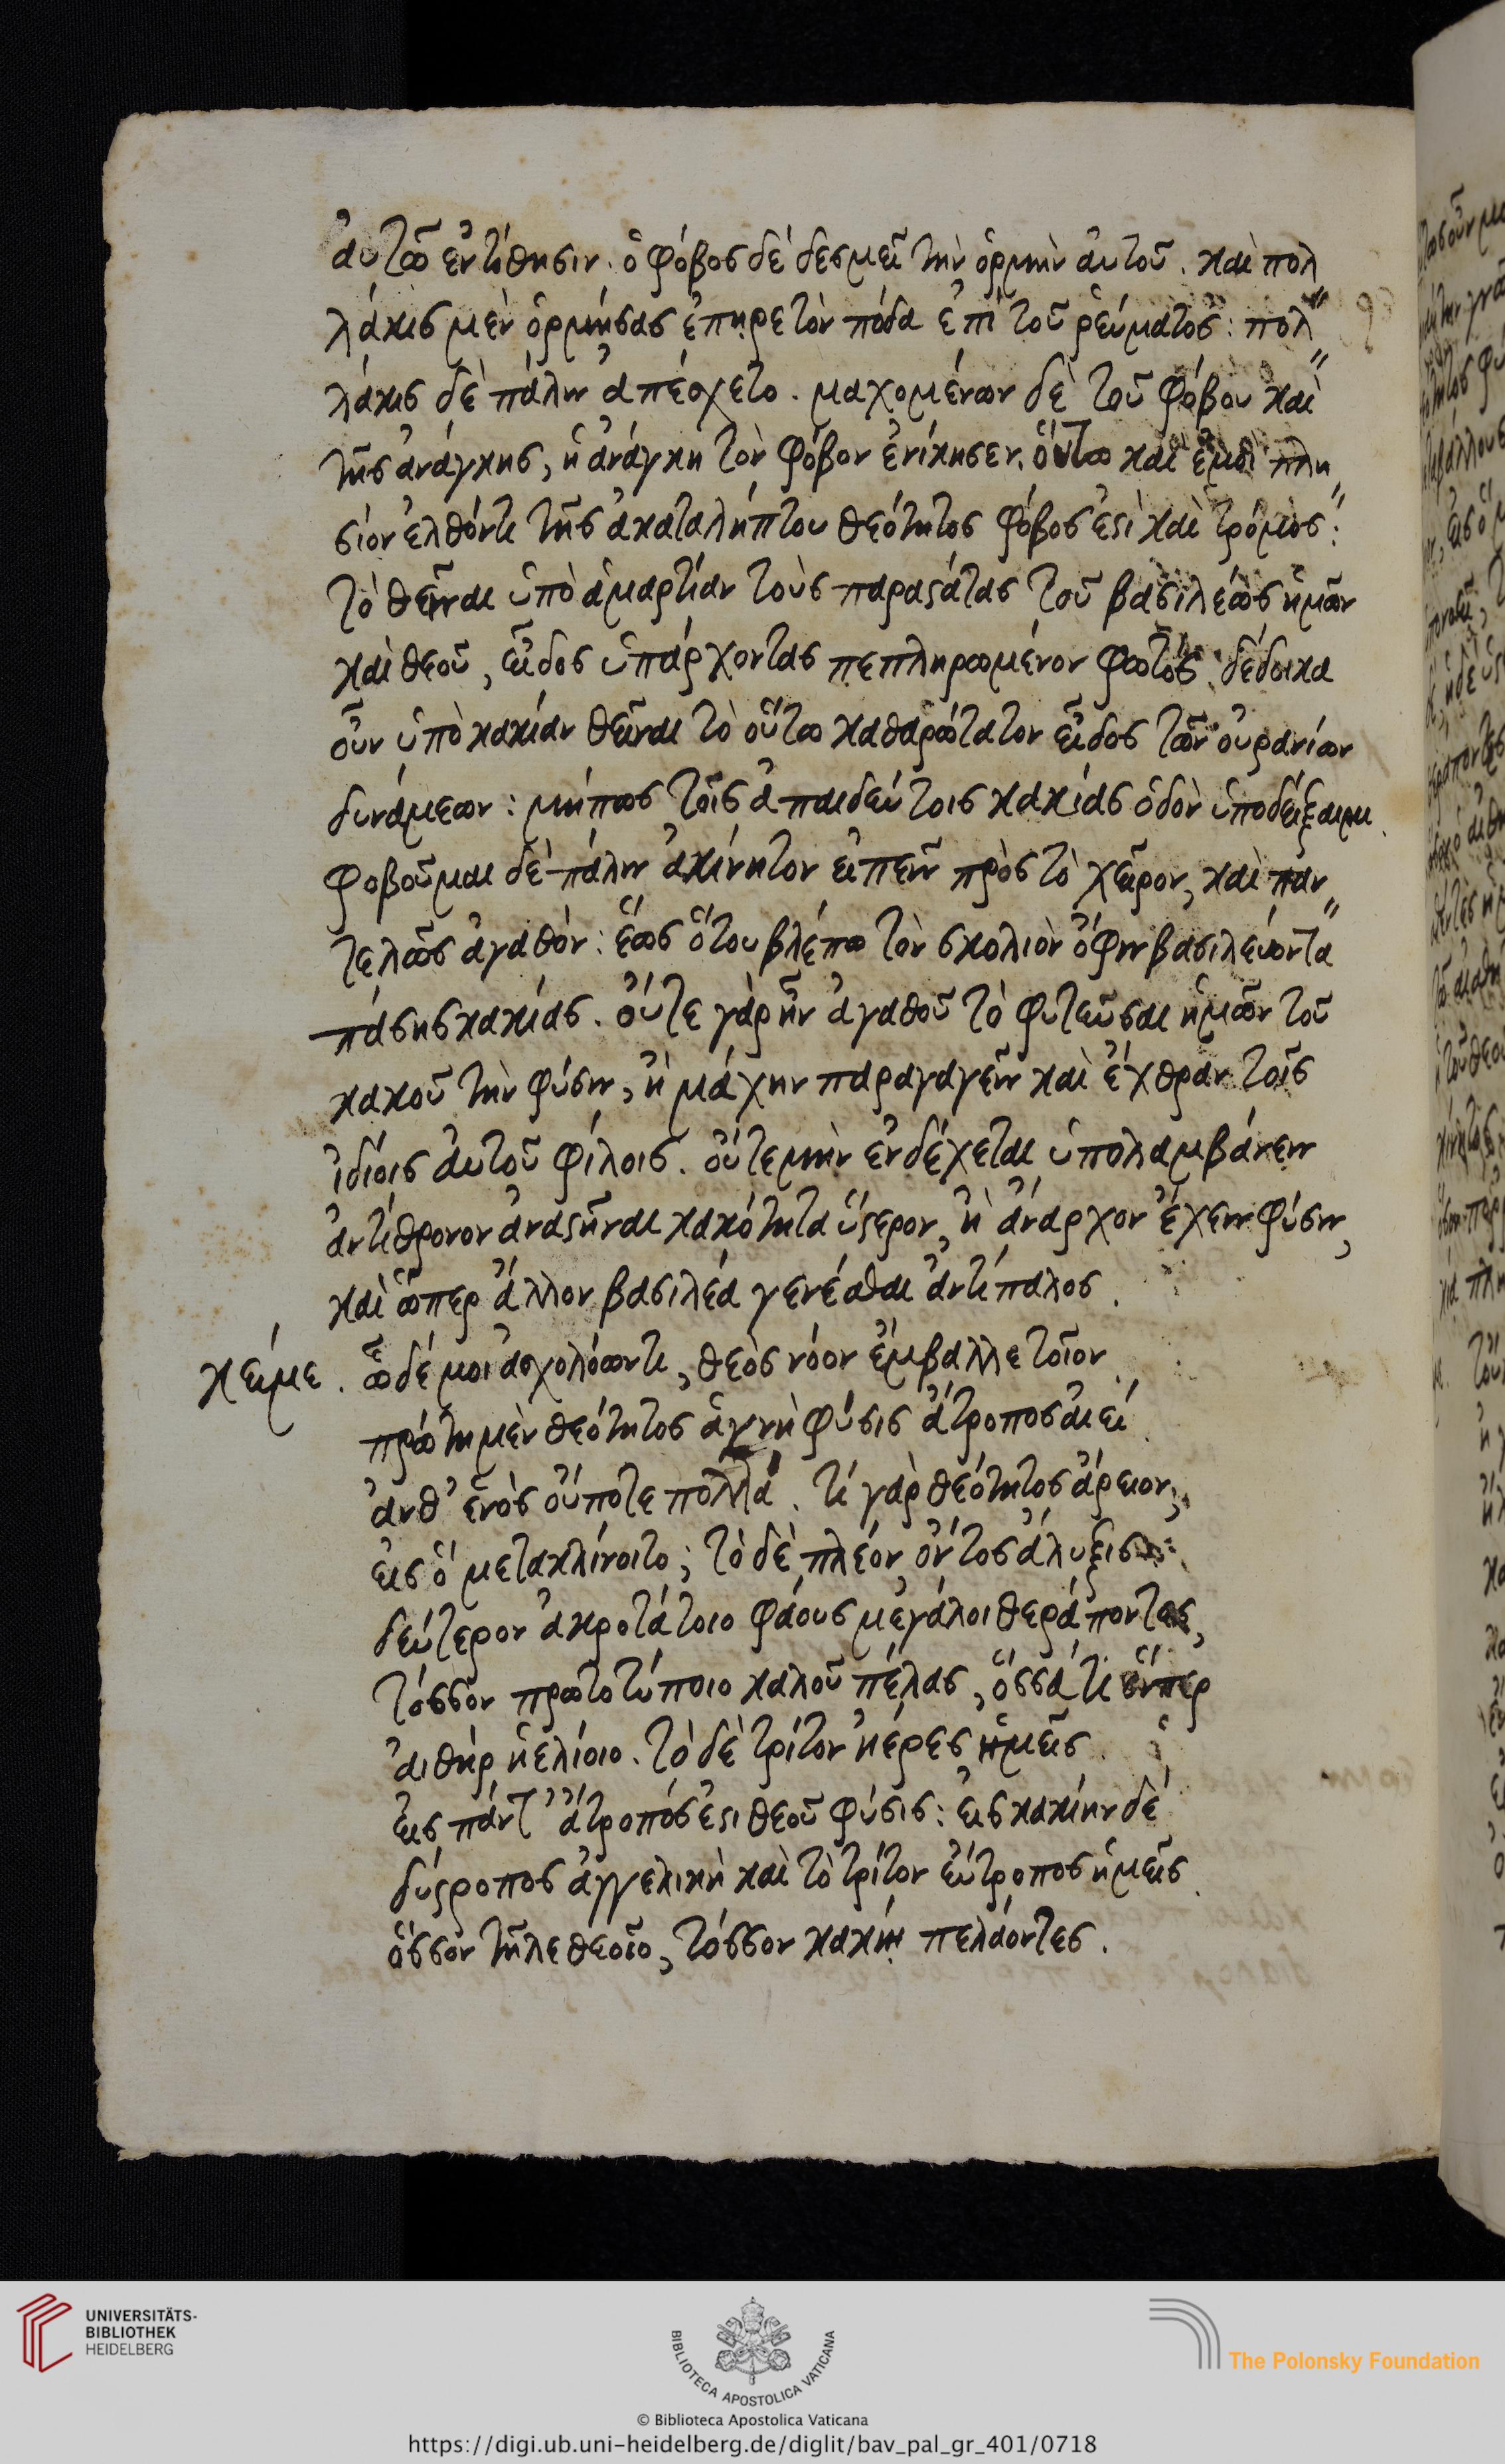 ἀυτῶ ἐντίθησιν. ὁ φόβος δὲ δεσμεῖ τὴν ὁρμὴν ἀυτοῦ. καὶ πολ
λάκις μὲν ὁρμήσας ἐπῆρε τὸν πόδα ἐπὶ τοῦ ῥεύματος: πολ
λάκις δὲ πάλιν ἀπέσχετο. μαχομένων δὲ τοῦ φόβου καὶ
τῆς ἀνάγκης, ἡ ἀνάγκη τὸν φόβον ἐνίκησεν. οὕτω καὶ ἐμοὶ πλη
σίον ἐλθόντι τῆς ἀκαταλήπτου θεότητος φόβος ἐστὶ καὶ τρόμος:
τὸ θεῖναι ὑπὸ ἁμαρτίαν τοὺς παραστάτας τοῦ βασιλέως ἡμῶν
καὶ θεοῦ, εἶδος ὑπάρχοντας πεπληρωμένον φωτός. δέδοικα
οὖν ὑπὸ κακίαν θεῖναι τὸ οὕτω καθαρώτατον εἶδος τῶν οὐρανίων
δυνάμεων: μήπως τοῖς ἀπαιδεύτοις κακίας ὁδὸν ὑποδείξαιμι.
φοβοῦμαι δὲ πάλιν ἀκίνητον εἰπεῖν πρὸς τὸ χεῖρον, καὶ παν
τελῶς ἀγαθόν: ἕως ὅτου βλέπω τὸν σκολιὸν ὄφιν βασιλεύοντα
πάσης κακίας. οὔτε γὰρ ἦν ἀγαθοῦ τὸ φυτεῦσαι ἡμῶν τοῦ
κακοῦ τὴν φύσιν, ἢ μάχην παραγαγεῖν καὶ ἔχθραν τοῖς
ἰδίοις ἀυτοῦ φίλοις. οὔτε μὴν ἐνδέχεται ὑπολαμβάνειν
ἀντίθρονον ἀναστῆναι κακότητα ὕστερον, ἢ ἄναρχον ἔχειν φύσιν,
καὶ ὥσπερ ἄλλον βασιλέα γενέσθαι ἀντίπαλος.
κείμε. ὧδέ μοι ἀσχολόωντι, θεὸς νόον ἔμβαλλε τοῖον
πρώτη μὲν θεότητος ἁγνὴ φύσις ἄτροπος ἀιεί
ἀνθ' ἑνὸς οὔποτε πολλά. τί γὰρ θεότητος ἄρειον,
εἰς ὃ μετακλίνοιτο; τὸ δὲ πλέον ὄντος ἄλυξις:
δεύτερον ἀκροτάτοιο φάους μεγάλοι θεράποντες,
τόσσον πρωτοτύποιο καλοῦ πέλας, ὅσσάτι ἕνπερ
ἀιθὴρ ἠελίοιο. τὸ δὲ τρίτον ἠέρες ἡμεῖς
εἰς πάντ' ἄτροπός ἐστι θεοῦ φύσις: εἰς κακίην δὲ
δύστροπος ἀγγελικὴ καὶ τὸ τρίτον εὔτροπος ἡμεῖς
ὅσσον τῆλε θεοῖο, τόσσον κακίῃ πελάοντες.
UNIVERSITÄTS-
BIBLIOTHEK
HEIDELBERG
BIBLIOTECA APOSTOLICA VATICANA
The Polonsky Foundation
© Biblioteca Apostolica Vaticana
https://digi.ub.uni-heidelberg.de/diglit/bav_pal_gr_401/0718